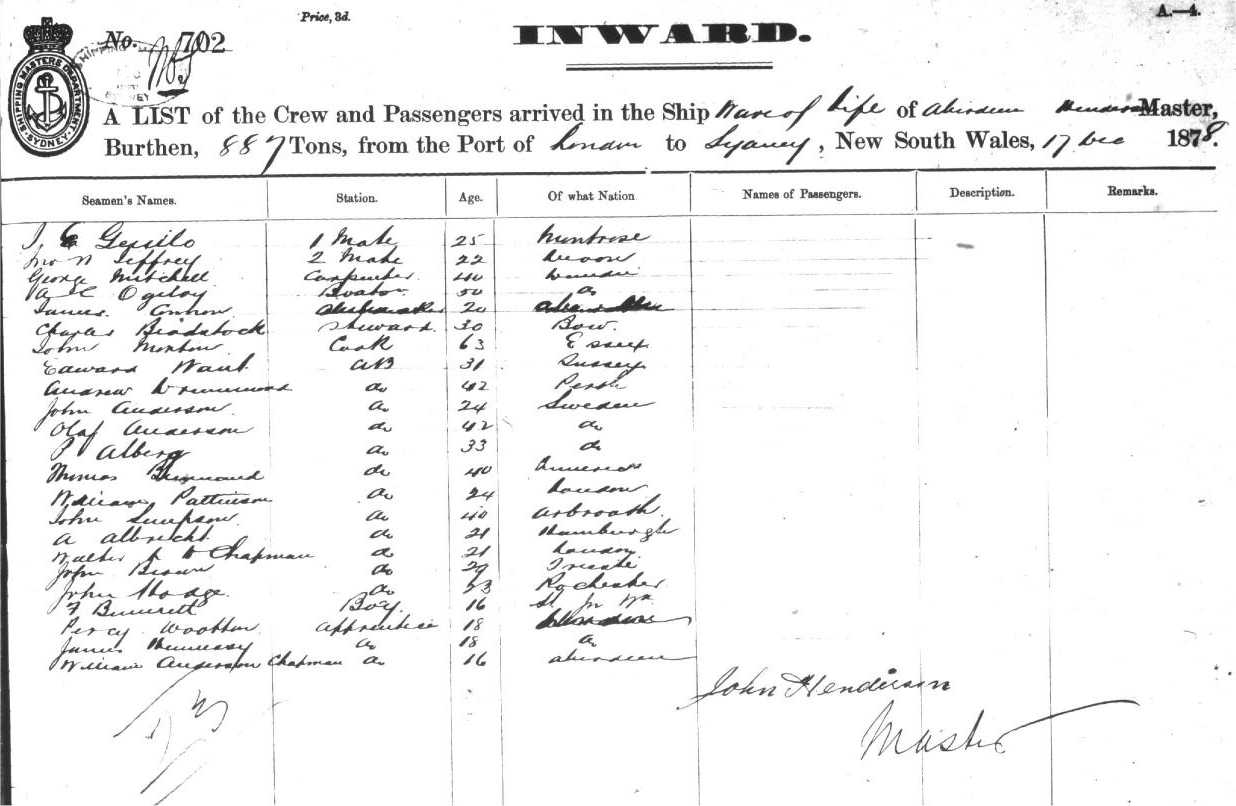 Price, 3d.
A.—4.
No. 702
INWARD.
SHIPPING MASTERS DEPARTMENT SYDNEY
A LIST of the Crew and Passengers arrived in the Ship Wave of Life of Aberdeen Henderson Master,
Burthen, 887 Tons, from the Port of London to Sydney, New South Wales, 17 Dec 1878.
Seamen's Names. Station. Age. Of what Nation Names of Passengers. Description. Remarks.
1 Mate 25 Montrose
Jno Jeffrey 2 Mate 22 Devon
George Mitchell Carpenter 40 Dundee
Ogilvy Boatsn 50 do
James Connon 20
Charles Bradstock Steward 30 Bow.
John Morton Cook 63 Essex
Edward AB 31 Sussex
Andrew Drummond do 42 Perth
John Anderson do 24 Sweden
Olaf Anderson do 42 do
P Alberg do 33 do
Thomas do 40 America
William Pattinson do 24 London
John Simpson do 40 Arbroath
A Albrecht do 21 Hamburgh
Walter Chapman do 21 London
John Brown do 29 Trieste
John Hodge do 23 Rochester
F Bennett Boy. 16
Percy Wootton Apprentice 18
James Hennessy do 18 do
William Anderson Chapman do 16 Aberdeen
John Henderson
Master